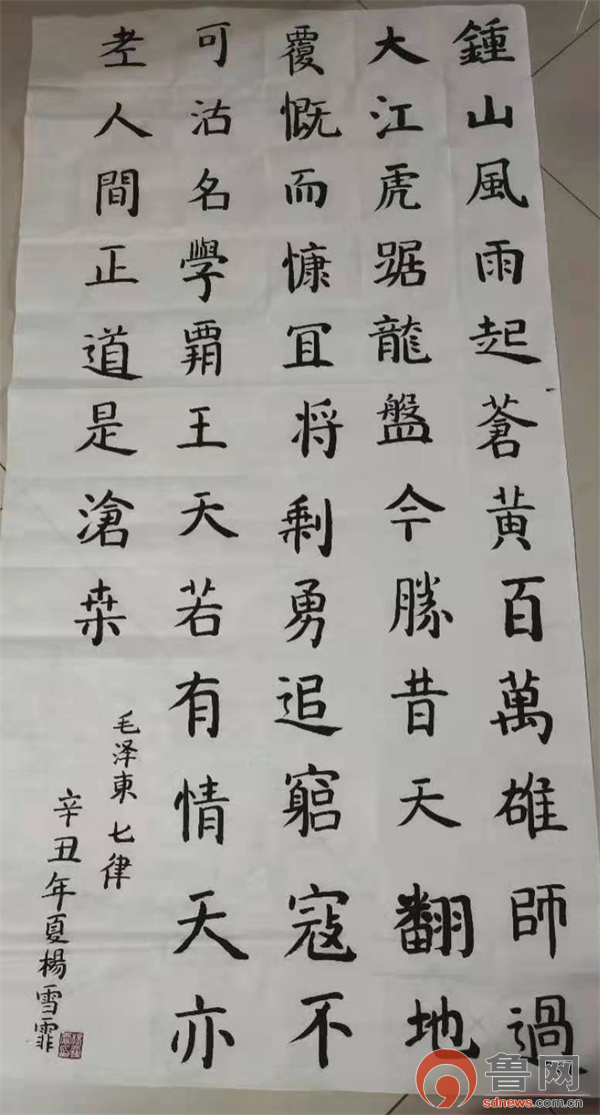 鍾山風雨起蒼黄百萬雄師過
大江虎踞龍盤今勝昔天翻地
覆慨而慷冝将剩勇追窮寇不
可沽名學覇王天若有情天亦
老人間正道是滄桒
毛泽東七律
辛丑年夏楊雪霏
鲁网
sdnews.com.cn